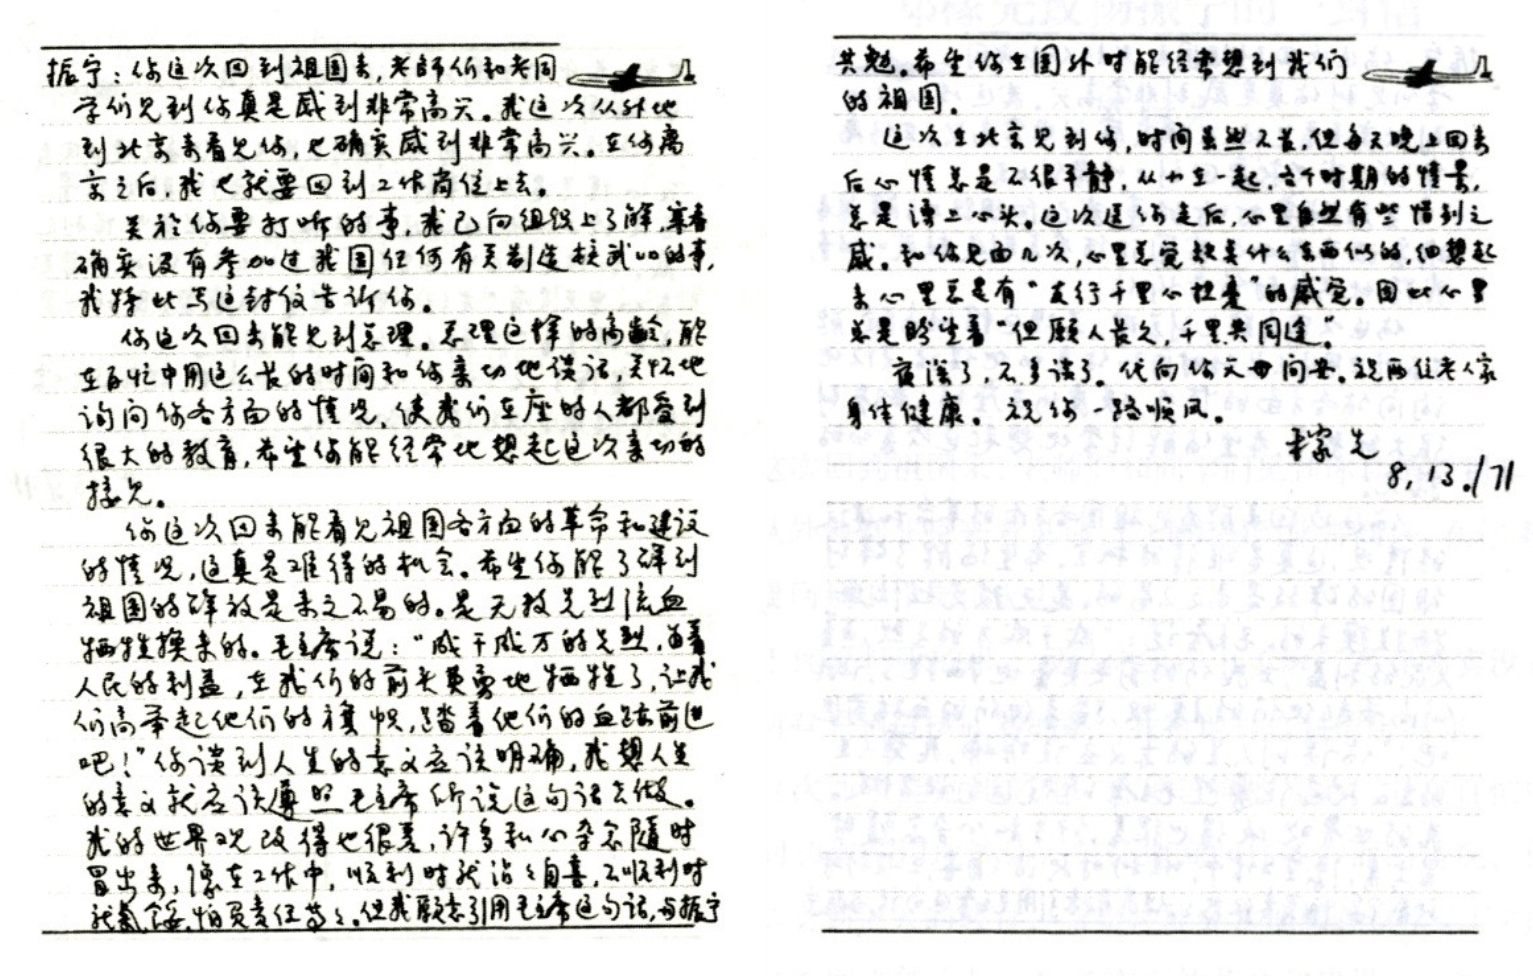 振宁：你这次回到祖国来，老师们和老同
学们见到你真是感到非常高兴。我这次从外地
到北京来看见你，也确实感到非常高兴。在你离
京之后，我也就要回到工作岗位上去。
关於你要打听的事，我已向组织上了解，寒春
确实没有参加过我国任何有关制造核武器的事，
我特此写这封信告诉你。
你这次回来能见到总理。总理这样的高龄，能
在百忙中用这么长的时间和你亲切地谈话，关怀地
询问你各方面的情况，使我们在座的人都受到
很大的教育，希望你能经常地想起这次亲切的
接见。
你这次回来能看见祖国各方面的革命和建设
的情况，这真是难得的机会。希望你能了解到
祖国的解放是来之不易的。是无数先烈流血
牺牲换来的。毛主席说：“成千成万的先烈，为着
人民的利益，在我们的前头英勇地牺牲了，让我
们高举起他们的旗帜，踏着他们的血迹前进
吧！”你谈到人生的意义应该明确，我想人生
的意义就应该遵照毛主席所说这句话去做。
我的世界观改得也很差，许多私心杂念随时
冒出来，像在工作中，顺利时就沾沾自喜，不顺利时
就气馁，怕负责任等等。但我愿意引用毛主席这句话，与振宁
共勉。希望你在国外时能经常想到我们
的祖国。
这次在北京见到你，时间虽然不长，但每天晚上回来
后心情总是不很平静，从小在一起，各个时期的情景，
总是涌上心头。这次送你走后，心里自然有些惜别之
感。和你见面几次，心里总觉缺点什么东西似的，细想起
来心里总是有“友行千里心担忧”的感觉。因此心里
总是盼望着“但愿人长久，千里共同途”。
夜深了，不多谈了。代向你父母问安。祝两位老人家
身体健康。祝你一路顺风。
稼先
8.13./71